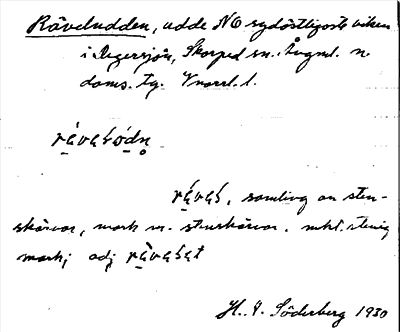 Räveludden, udde NO sydöstligaste viken
i Degersjön, Skorped sn. Ångml. n
doms. tg. Vnorrl. l.
rävelódn
rävel, samling av sten-
skärvor, mark m. stenskärvor. mkt. stenig
mark; adj rävelet
H. V. Söderberg 1930